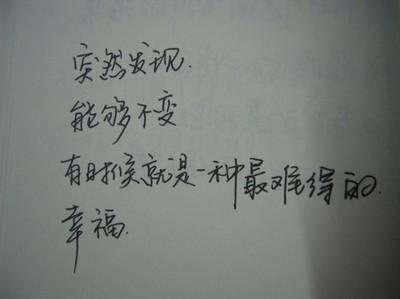 突然发现.
能够不变
有时候就是一种最难得的.
幸福.